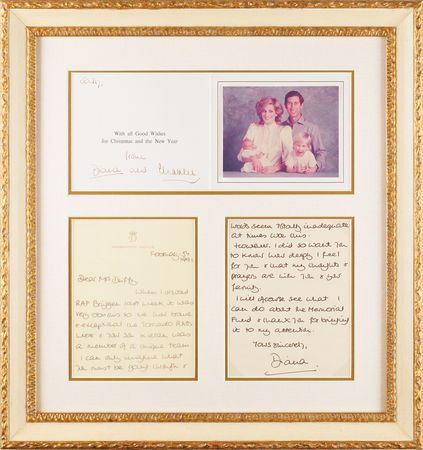 With all Good Wishes
for Christmas and the New Year
from
Diana and Charles
February 5th
1991
Dear Mr Duffy,
When I visited
RAF Bruggen last week it was
very obvious to me how brave
& exceptional the Tornado crews
were & that
was a
member of a unique team
I can only imagine what
you must be going through &
Words seem totally inadequate
at times like this
However, I did so want you
to know how deeply I feel
for you & that my thoughts &
prayers are with you & your
family.
I will of course see what I
can do about the Memorial
Fund & thank you for bringing
it to my attention.
Yours sincerely,
Diana